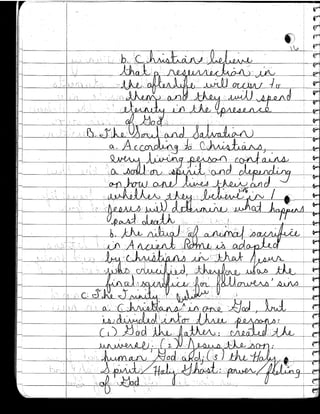 16
b. Christians believe
that a resurrection in
the afterlife will occur to
them and they will spend
eternity in the presence
of God.
B. The Soul and Salvation
a. According to Christians,
every living person contains
a soul or spirit and depending
on how one lives their and
whether they believe in
Jesus will determine what happens
past death.
b. the ritual of animal sacrifice
in Ancient Rome is adapted
by Christians in that Jesus
was crucified, therefore was the
final sacrifice for followers' sins
C. The Trinity
a. Christians believe in one God, but
is divided into three persons:
(1) God the father: created the
universe; (2) Jesus the son:
human God and; (3) the Holy
Spirit/Holy Ghost: power/feeling
of God